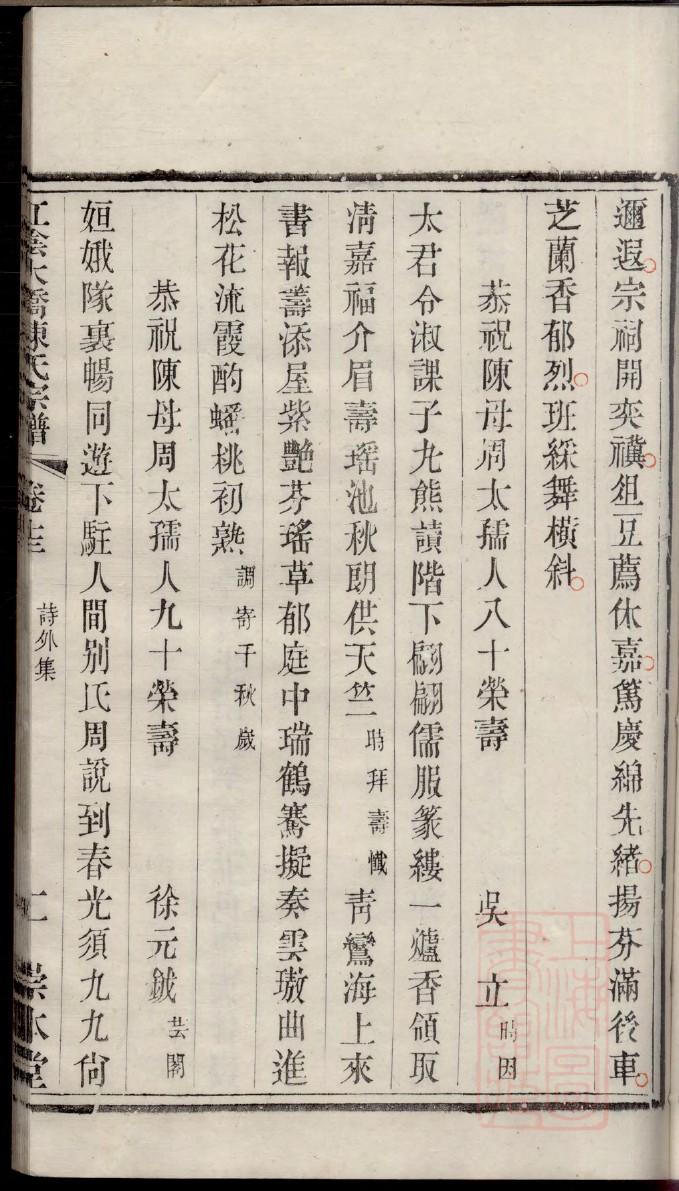 邇遐宗祠開奕禩俎豆薦休嘉篤慶綿先緒揚芬滿後車
芝蘭香郁烈班綵舞橫斜
恭祝陳母周太孺人八十榮壽 吳立
太君令淑課子九熊讀階下翩翩儒服篆縷一爐香領取
淸嘉福介眉壽瑶池秋朗供天竺時拜壽懺靑鸞海上來
書報籌添屋紫艷芬瑤草郁庭中瑞鶴騫擬奏雲璈曲進
松花流霞酌蟠桃初熟調寄千秋歲
恭祝陳母周太孺人九十榮壽 徐元鉞芸閣
姮娥隊裏暢同遊下駐人間别氏周說到春光須九九尙
江陰大橋陳氏宗譜 卷十三 詩外集 二 崇本堂